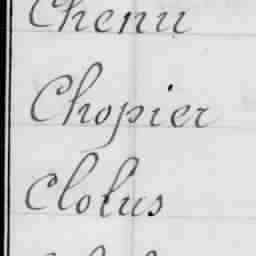 Chenu
Chopier
Clolus